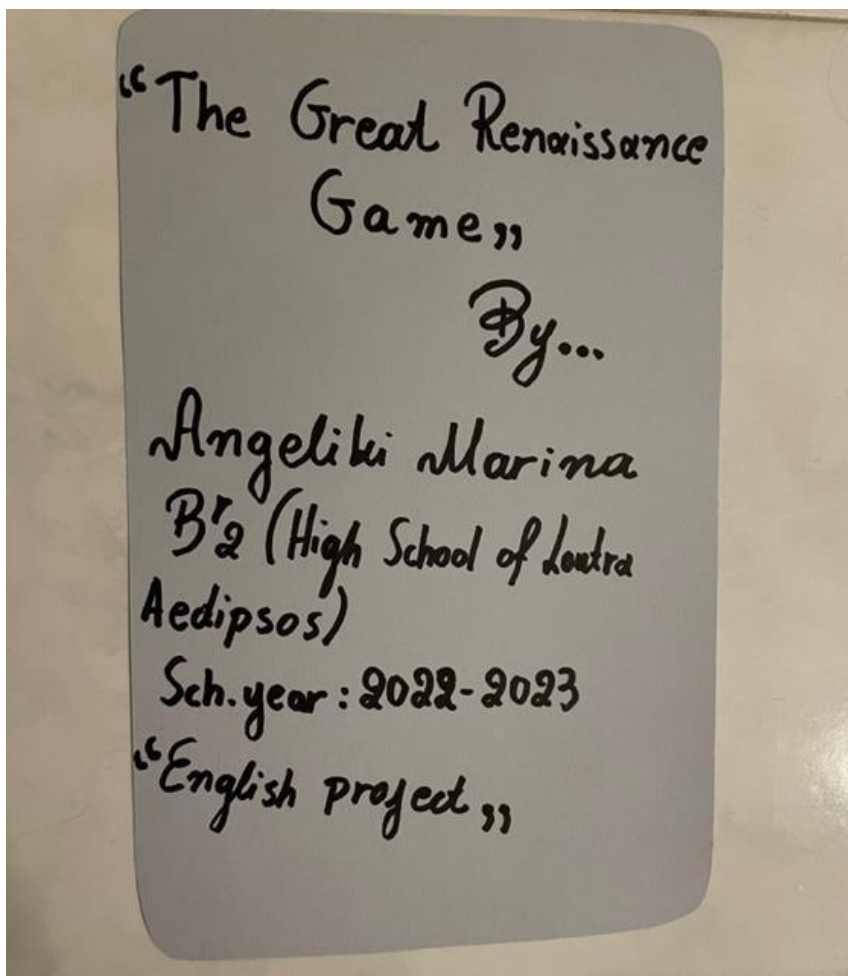 “The Great Renaissance
Game„
By...
Angeliki Marina
B'2 (High School of Loutra
Aedipsos)
Sch.year: 2022-2023
“English project„